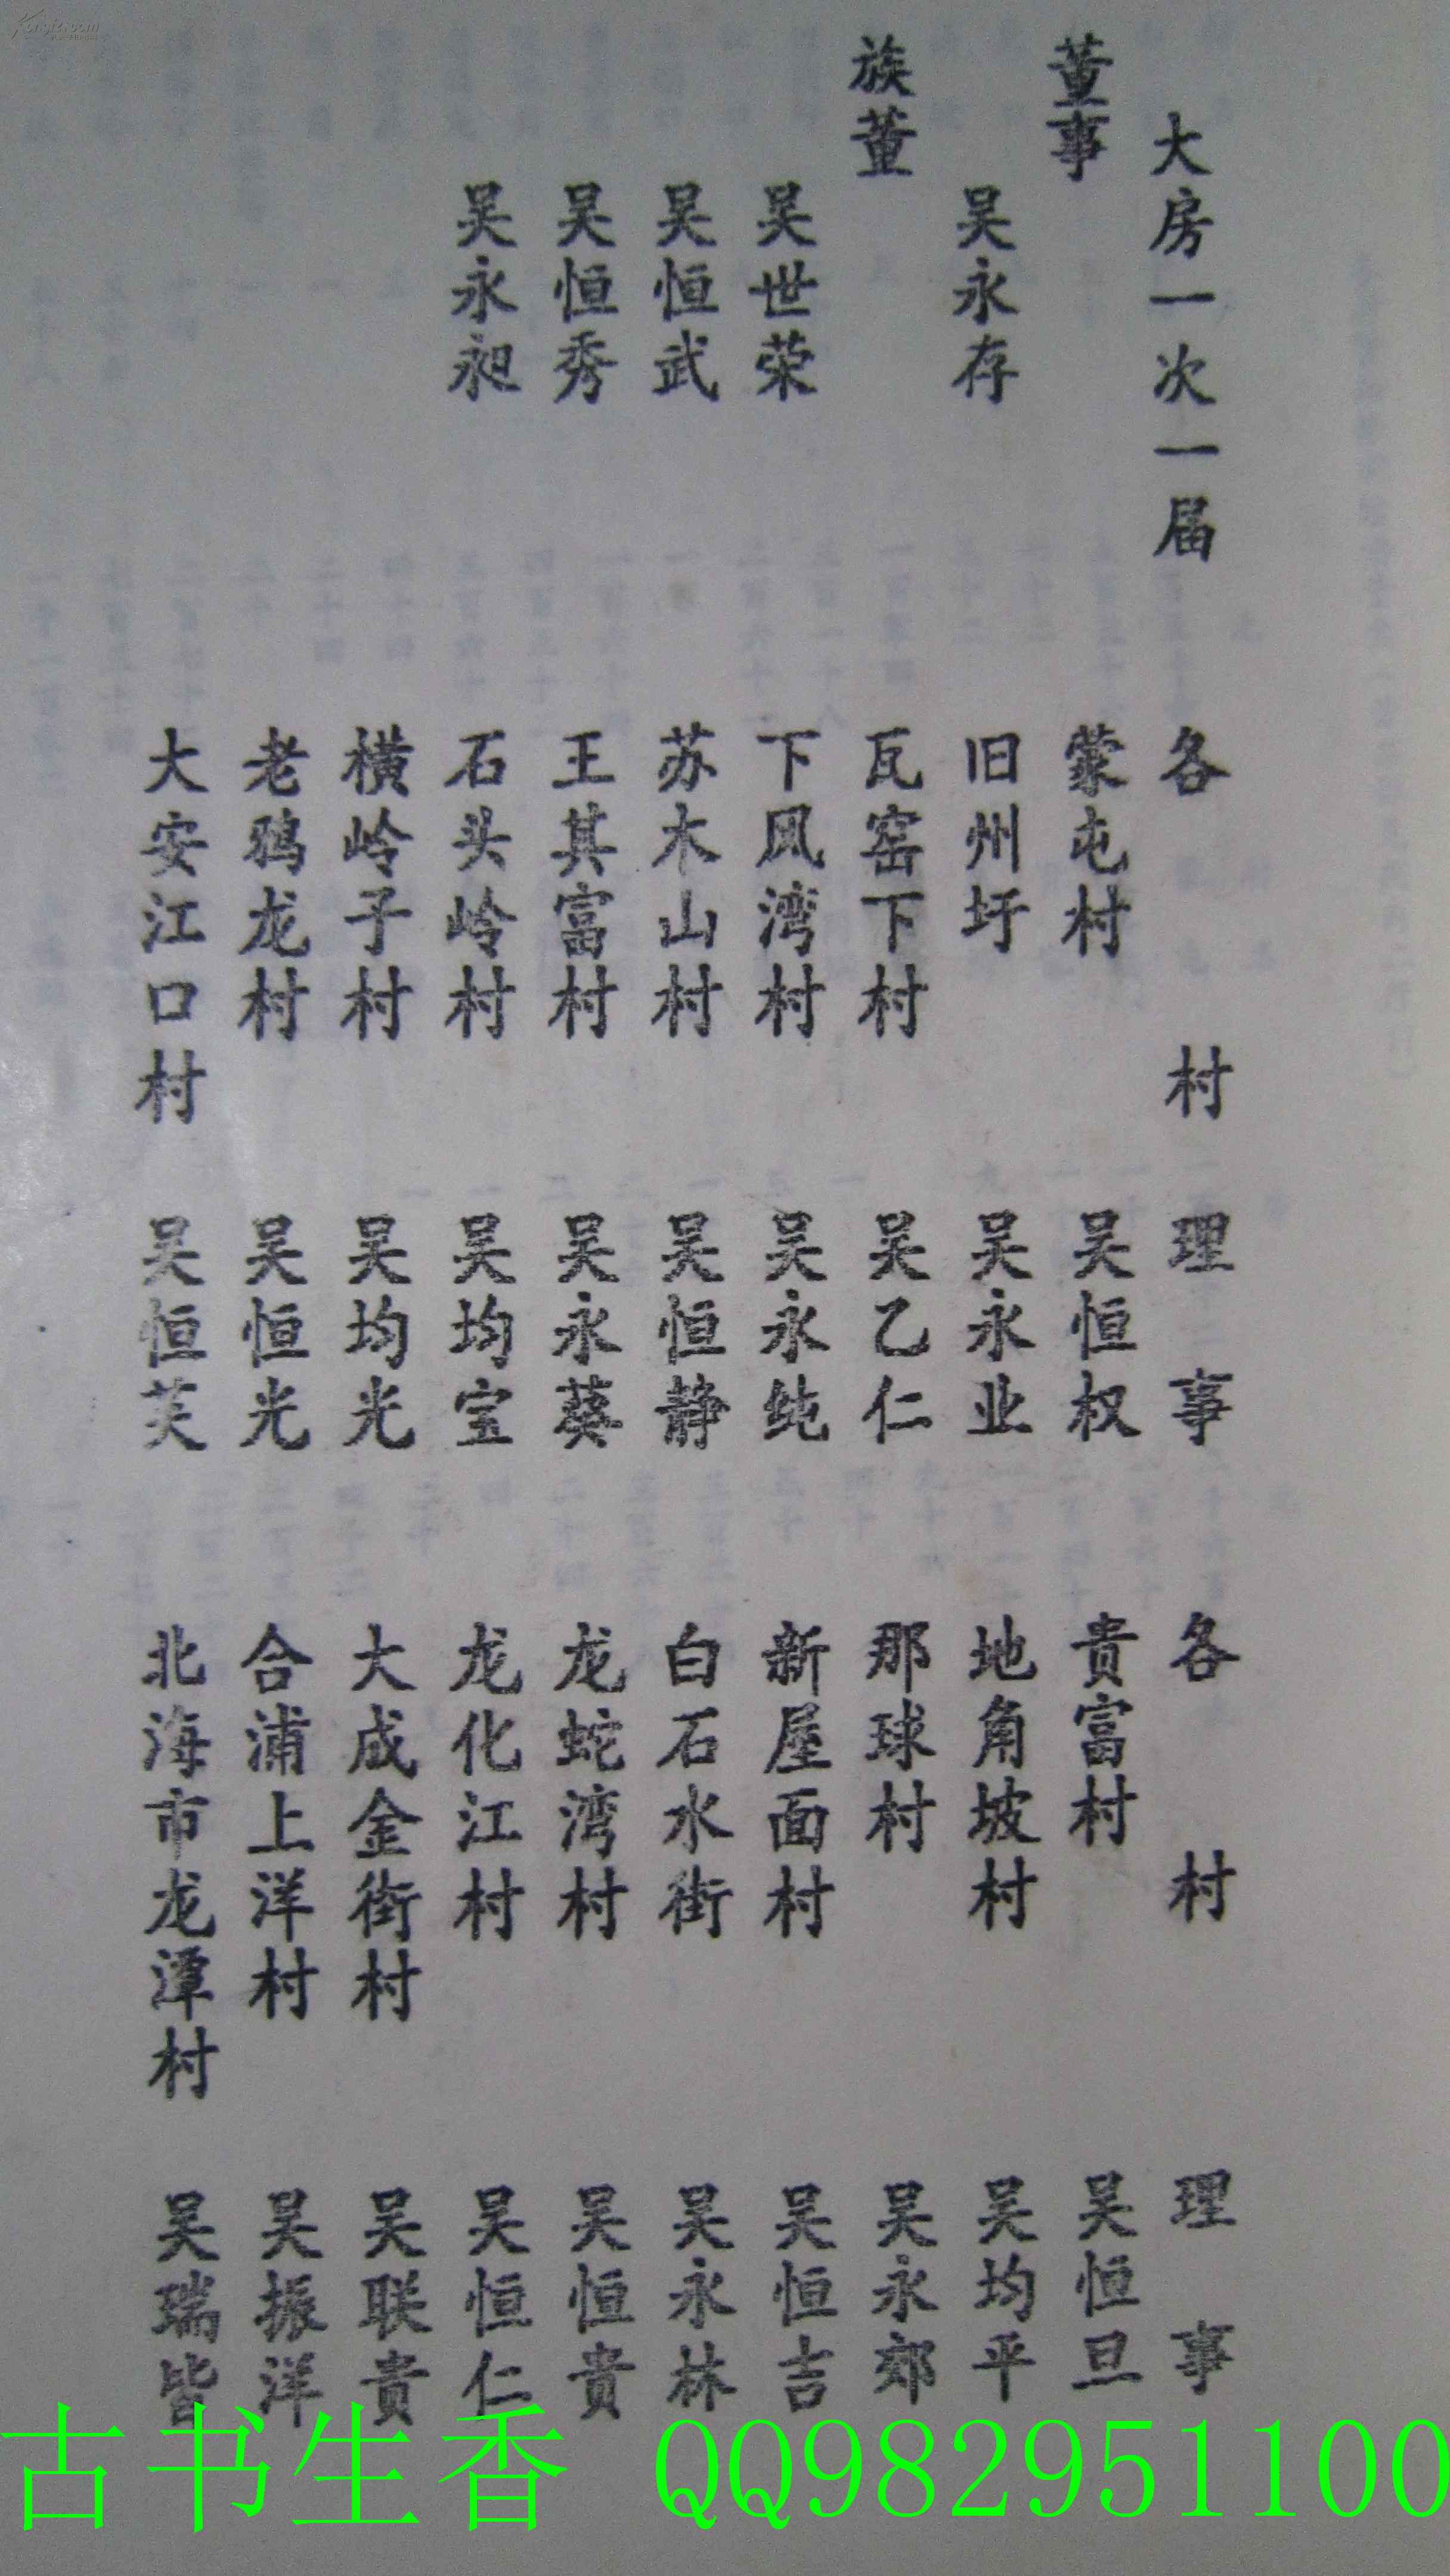 大房一次一届
董事
吴永存
族董
吴世荣
吴恒武
吴恒秀
吴永昶
各村 理事
蒙屯村 吴恒权
旧州圩 吴永业
瓦窑下村 吴乙仁
下风湾村 吴永纯
苏木山村 吴恒静
王其富村 吴永葵
石头岭村 吴均宝
横岭子村 吴均光
老鸦龙村 吴恒光
大安江口村 吴恒芙
各村 理事
贵富村 吴恒旦
地角坡村 吴均平
那球村 吴永郊
新屋面村 吴恒吉
白石水街 吴永林
龙蛇湾村 吴恒贵
龙化江村 吴恒仁
大成金街村 吴联贵
合浦上洋村 吴振洋
北海市龙潭村 吴瑞皆
古书生香 QQ982951100